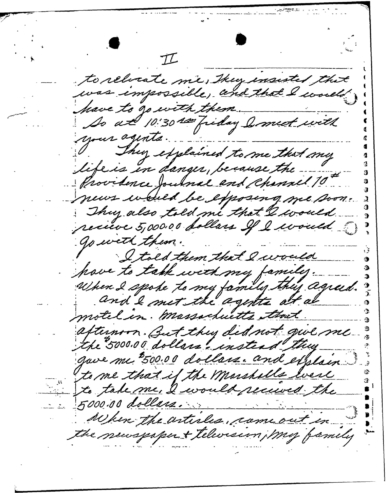 II
to relocate me, They insisted that
was impossible, and that I would
have to go with them.
So at 10:30 am Friday I met with
your agents.
They explained to me that my
life is in danger, because the
Providence Journal and Channel 10th
news would be exposing me soon.
They also told me that I would
recieve 5,000.00 dollars If I would
go with them.
I told them that I would
have to talk with my family.
When I spoke to my family they agreed.
and I met the agents at a
motel in Massachusetts that
afternoon. But they did not give me
the $5000.00 dollars. instead they
gave me $500.00 dollars. and explain
to me that if the Marshells were
to take me, I would recieved the
5000.00 dollars.
When the articles, came out in
the newspaper + television, my family